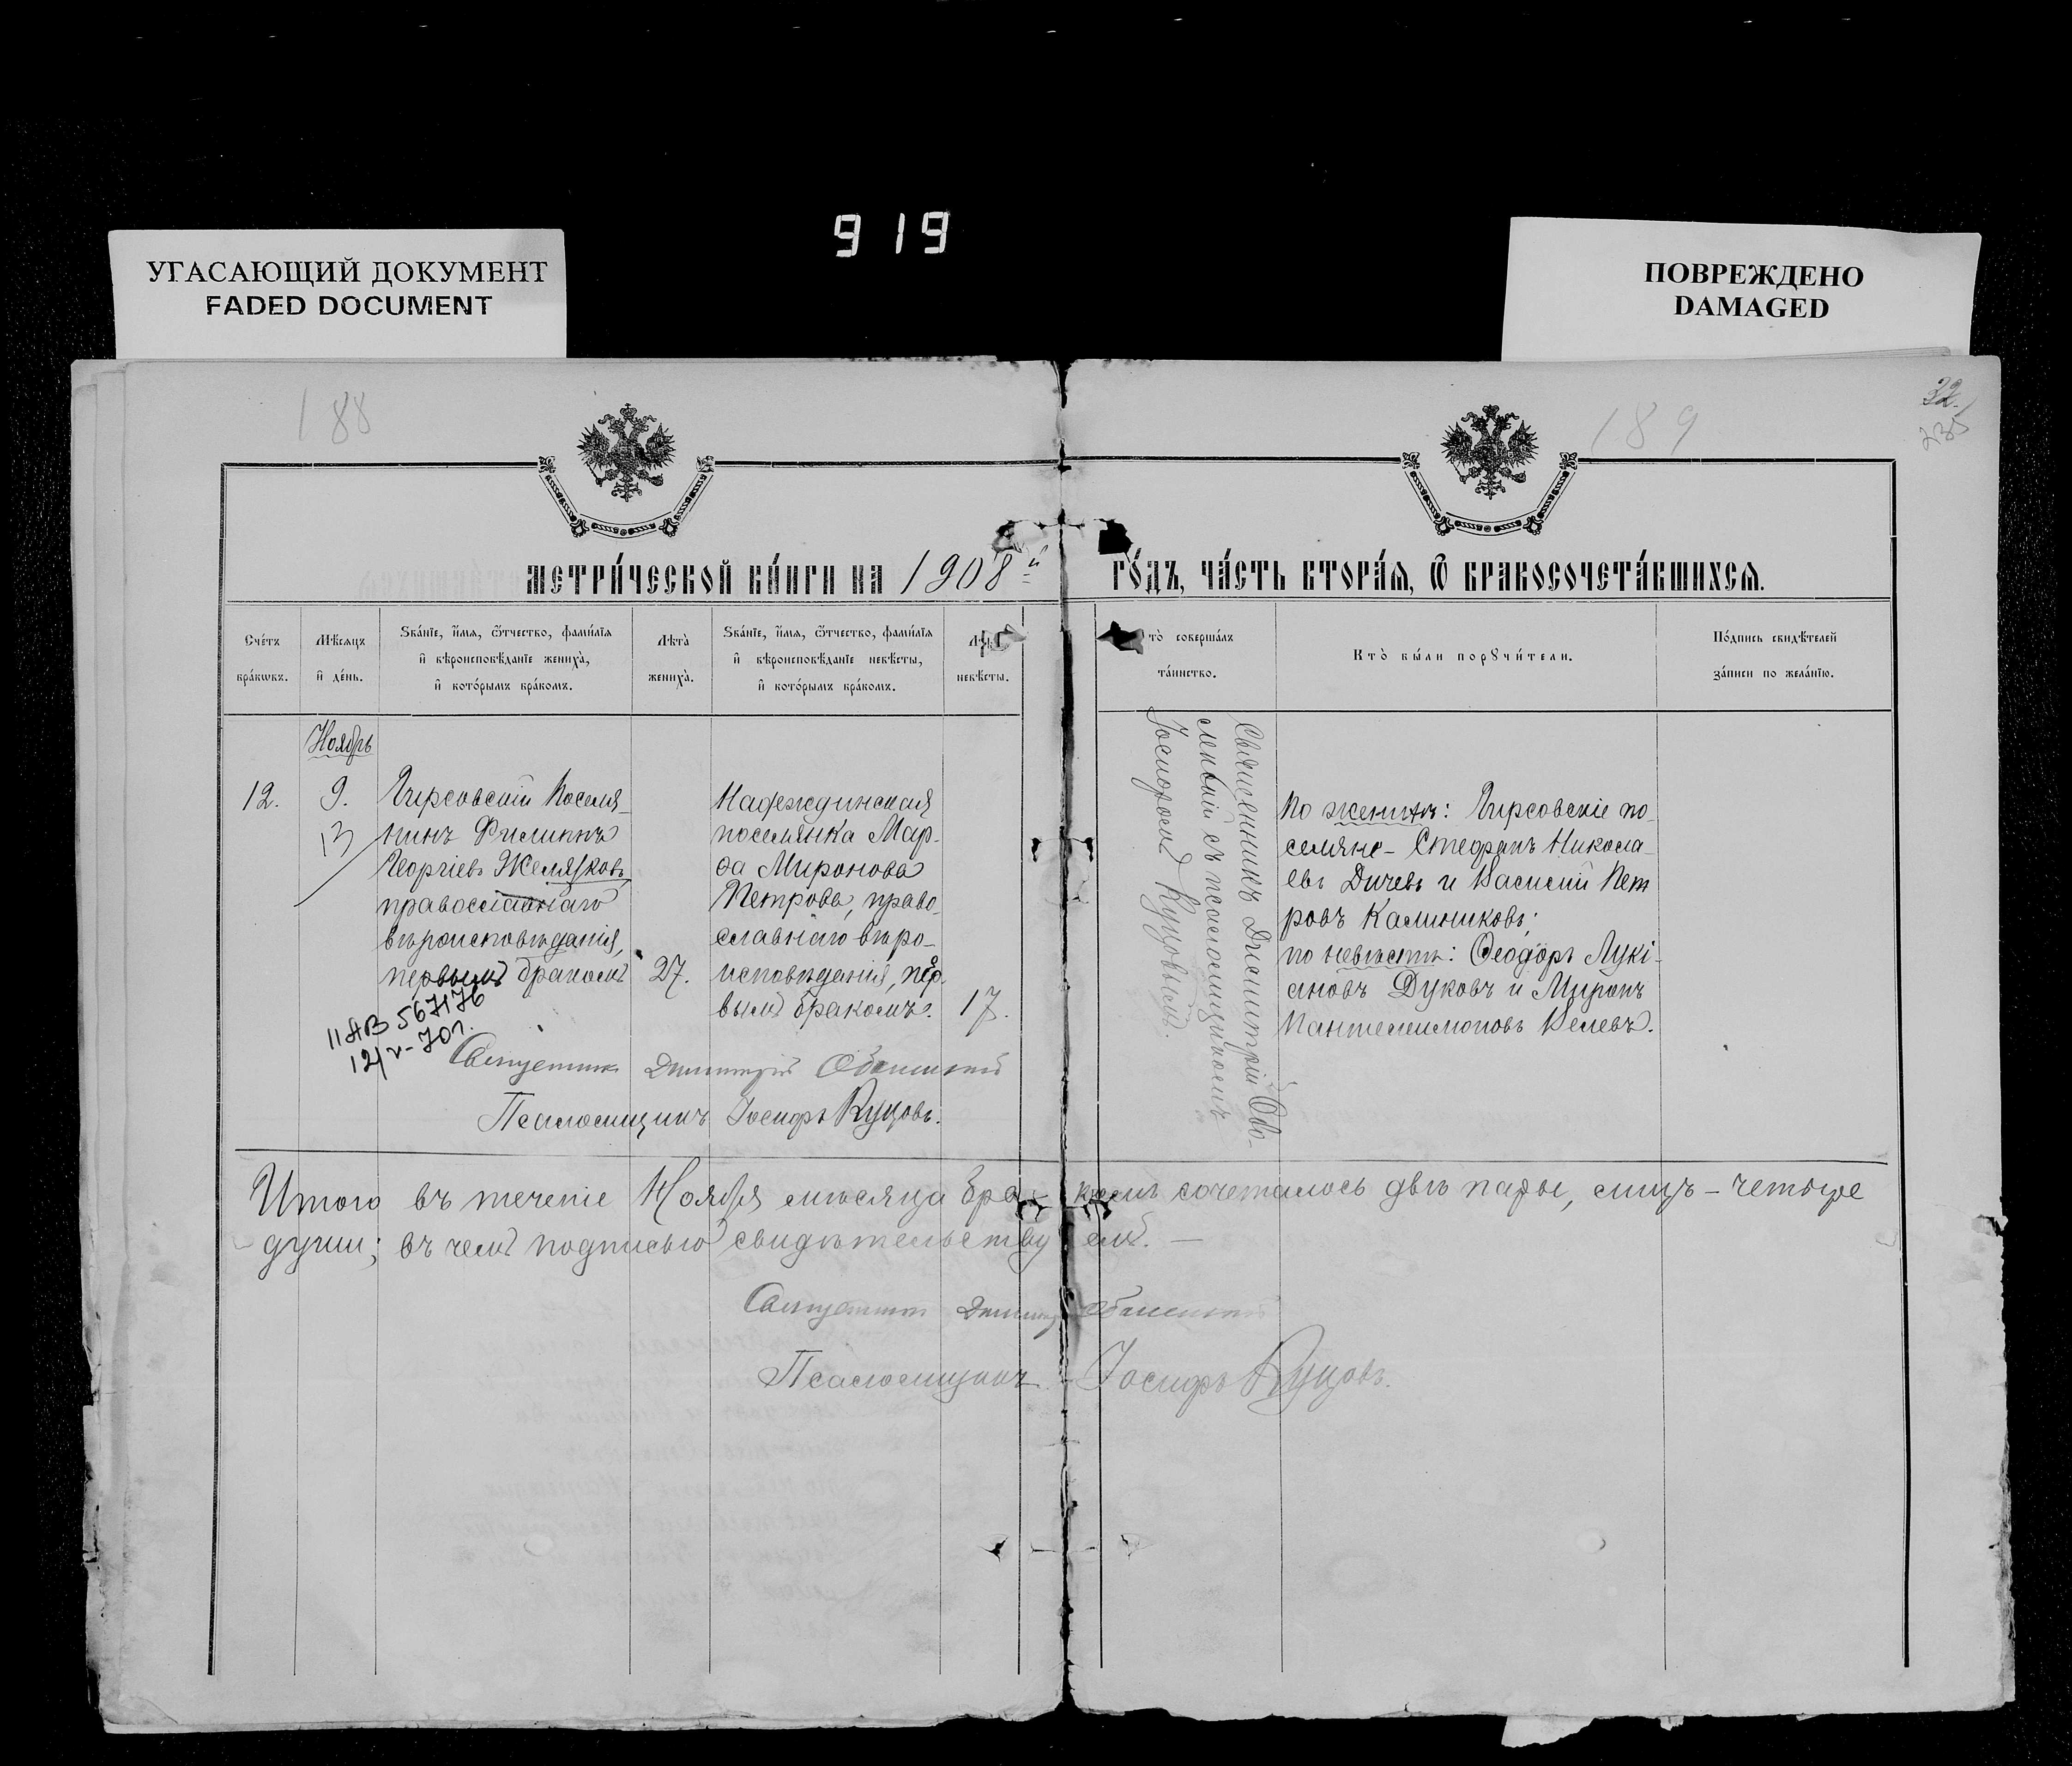 919
УГАСАЮЩИЙ ДОКУМЕНТ
FADED DOCUMENT
ПОВРЕЖДЕНО
DAMAGED
188
189
32.
МЕТРИ́ЧЕСКОЙ КНИ́ГИ НА 1908й
ГО́ДЪ, ЧА́СТЬ ВТОРА́Ѧ, Ѿ БРАКОСОЧЕТА́ВШИХСѦ.
Сче́тъ бра́кѡвъ.
Мѣ́сѧцъ и҆ де́нь.
Ѕва́нїе, и҆́мѧ, ѻ҆́тчество, фами́лїѧ
и҆ вѣроисповѣ́данїе жениха̀,
и҆ кото́рымъ бра́комъ.
Лѣта̀ жениха̀.
Ѕва́нїе, и҆́мѧ, ѻ҆́тчество, фами́лїѧ
и҆ вѣроисповѣ́данїе невѣ́сты,
и҆ кото́рымъ бра́комъ.
невѣ́сты.
то̀ соверша́лъ
та́инство.
Кто̀ бы́ли порꙋчи́тели.
По́дпись свидѣ́телей
за́писи по жела́нїю.
Ноябрь
12.
9.
13
Гирсовскій поселя-
нинъ Филиппъ
Георгіевъ Желясковъ,
православнаго
вѣроисповѣданія,
первымъ бракомъ
27.
11 АВ 567176
12/V-70г.
Надеждинская
поселянка Мар-
ѳа Миронова
Петрова, право-
славнаго вѣро-
исповѣданія, пер-
вымъ бракомъ.
17.
Священникъ Димитрій Обо-
ленскій съ псаломщикомъ
Іосифомъ Куцовымъ.
По женихѣ: Гирсовскіе по-
селяне - Стефанъ Никола-
евъ Дичевъ и Василий Пет
ровъ Калиниковъ;
по невѣстѣ: Ѳеодоръ Лукі-
ановъ Дуковъ и Миронъ
Пантелеимоновъ Велевъ.
Священникъ Димитрий Оболенский
Псаломщикъ Іосифъ Куцовъ.
Итого въ теченіе Ноября мѣсяца бракомъ сочеталось двѣ пары, лицъ - четыре
души; въ чемъ подписью свидѣтельствуемъ. —
Священникъ Димитр Оболенский
Псаломщикъ Іосифъ Куцовъ.